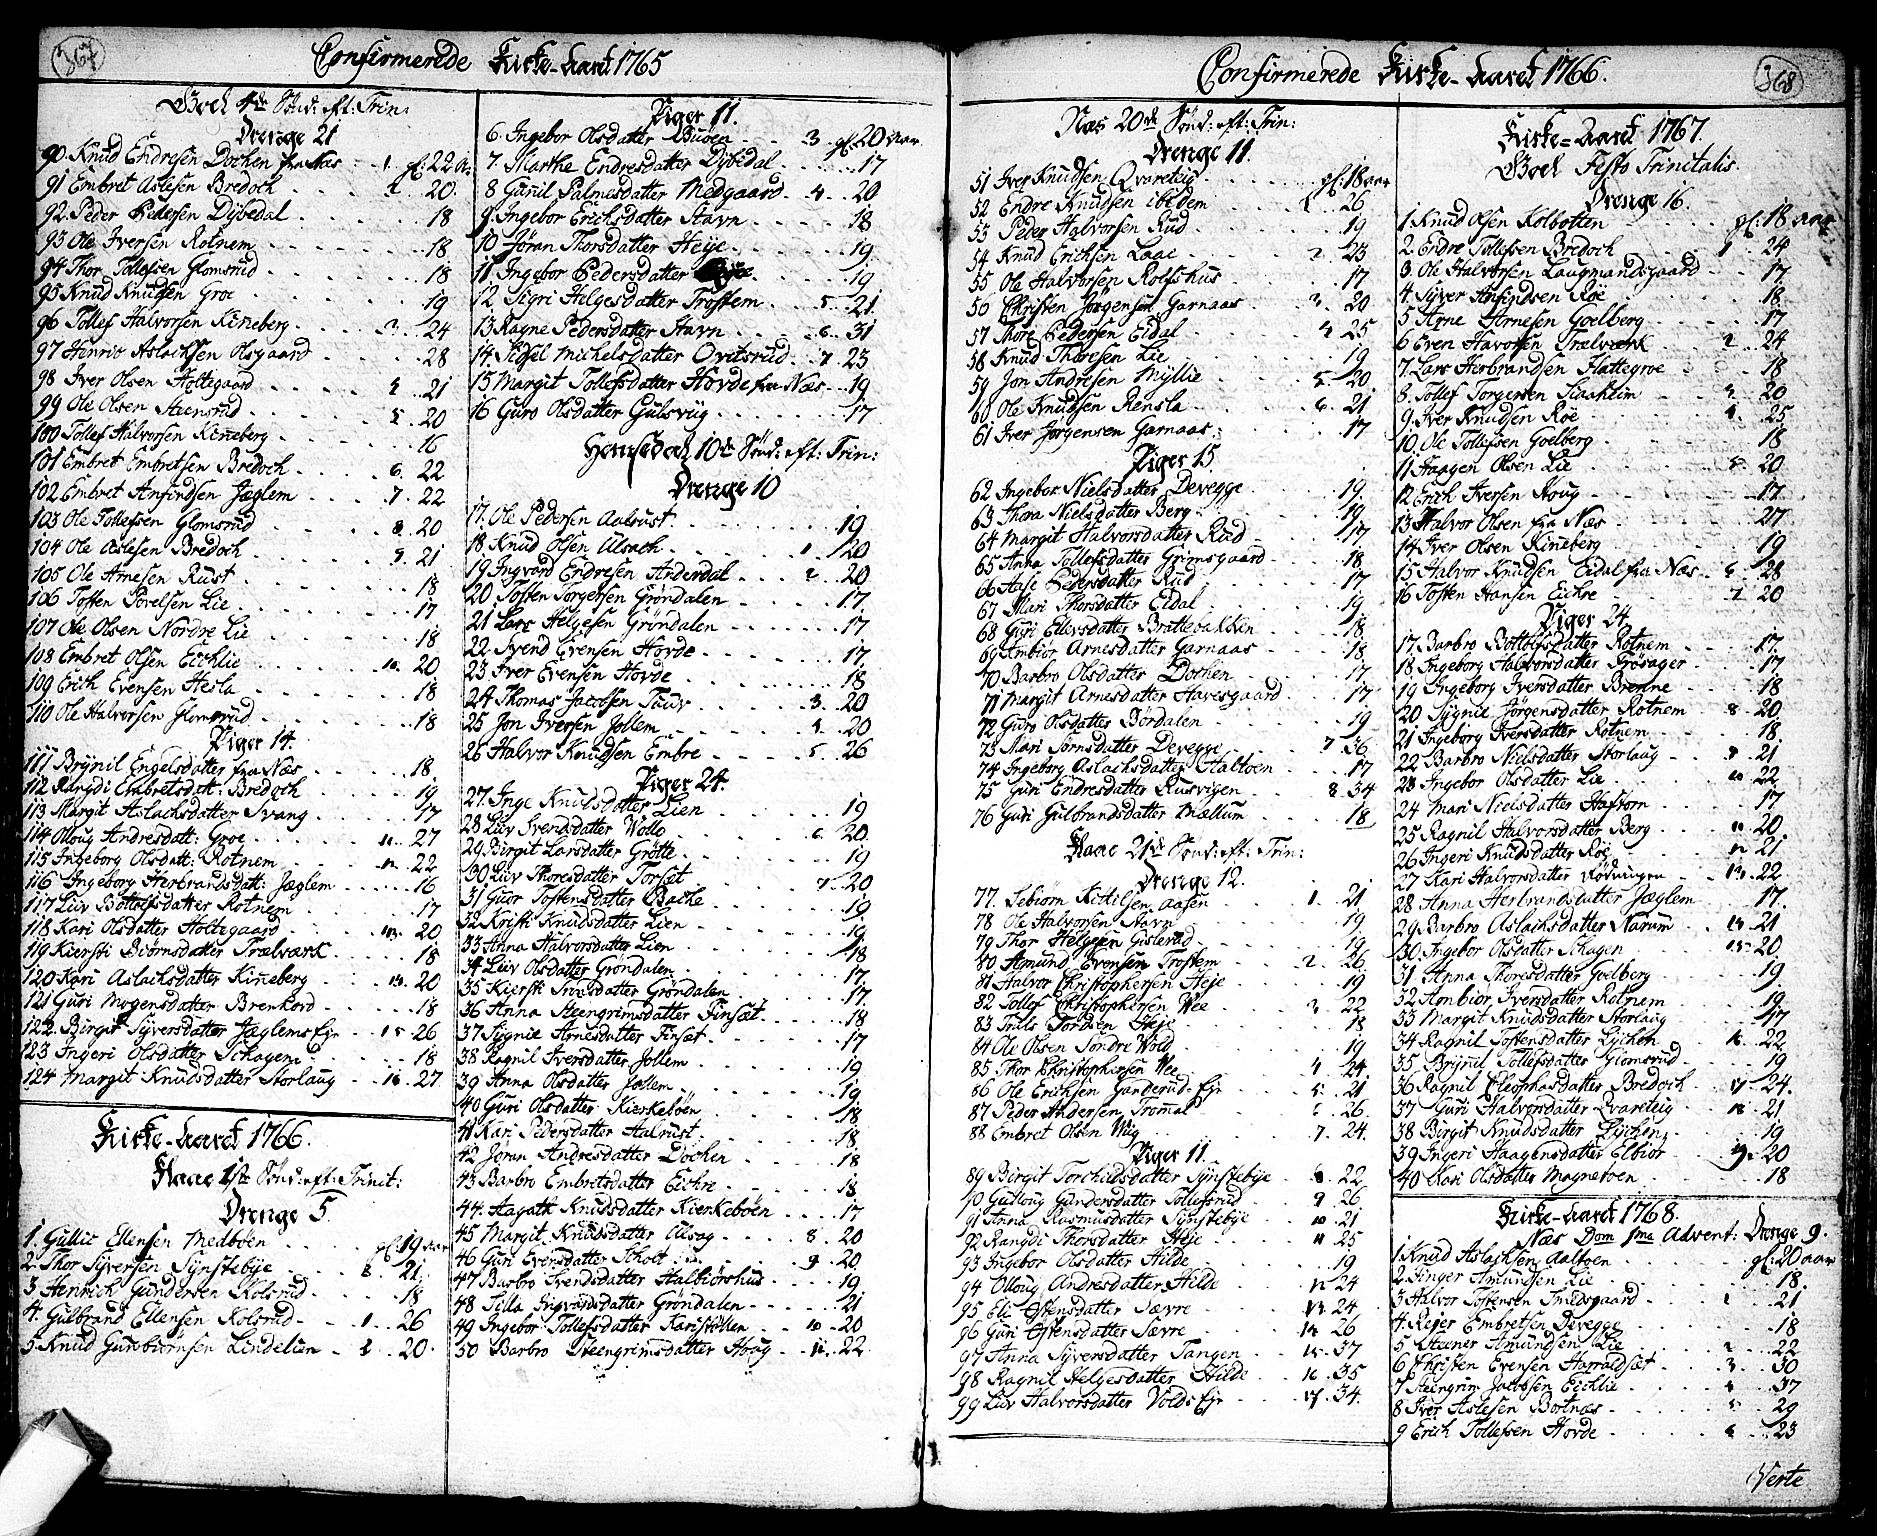 367
Confirmerede Kirke-Aaret 1765
Goel 4de Sønd: eft: Trin:
Drenge 21
90. Knud Endresen Dochen fra Næs 1. gl: 22 a:
91 Embret Aslesen Bredoch 2. 20.
92. Peder Pedersen Dybedal 18
93 Ole Iversen Rotnem 18
94 Thor Tollefsen Glomsrud 18
95 Knud Knudsen Groe 19
96 Tollef Halvorsen Kinneberg 3. 24
97 Henric Aslachsen Olsgaard 28
98 Iver Olsen Holtegaard 4 21
99 Ole Olsen Steensrud 5 20
100 Tollef Halvorsen Kinneberg 16
101 Embret Embretsen Bredoch 6. 22
102 Embret Anfindsen Jæglem 7. 22
103 Ole Tollefsen Glomsrud 8 20
104 Ole Aslesen Bredoch 9. 21
105 Ole Arnesen Rust 18
106 Tosten Povelsen Lie 17
107 Ole Olsen Nordre Lie 18
108 Embret Olsen Eichlie 10. 20
109 Erich Evensen Hesla 18
110 Ole Halvorsen Glomsrud 18
Piger 14.
111 Brynil Engelsdatter fra Næs 18
112 Rangdi Embretsdatt: Bredoch 19
113 Margit Aslachsdatter Svang 17
114 Olloug Andresdatt: Groe 11. 27
115 Ingeborg Olsdatt: Rotnem 12. 22
116 Ingeborg Herbrandsdatt: Jæglem 16
117 Liiv Bottolfsdatter Rotnem 17
118 Kari Olsdatter Holtegaard 13. 20
119 Kiersti Biørnsdatter Trælværk 18
120 Kari Aslachsdatter Kinneberg 14. 20
121 Guri Mogensdatter Brenkord 18
122. Birgit Syversdatter Jæglems Eje 15 26
123 Ingeri Olsdatter Schagen 18
124 Margit Knudsdatter Storlaug 16. 27
Kirke-Aaret 1766.
Flaae 1ste Sønd: eft: Trinit:
Drenge 5.
1. Gullic Ellensen Medboen gl: 19 aar
2. Thor Syversen Synstebye 21
3 Henrich Gundersen Kolsrud 18
4. Gulbrand Ellensen Kolsrud 1. 26
5. Knud Gunbiørnsen Lindelien 2. 20.
Piger 11.
6. Ingebor Olsdatter Buøen 3. gl: 20 aar
7. Marthe Endresdatter Dybedal 17
8 Gunil Palnesdatter Medgaard 4. 20
9. Ingebor Erichsdatter Stavn 18
10 Jøran Thorsdatter Heje 19
11 Ingebor Pedersdatter 19
12 Sigri Helgesdatter Trostem 5. 21.
13 Ragne Pedersdatter Stavn 6. 31
14. Sidsel Michelsdatter Ovitsrud 7. 23
15 Margit Tollefsdatter Hovde fra Næs 19
16 Guro Olsdatter Gulsvig 17
Hemsedal 10de Sønd: eft: Trin:
Drenge 10
17. Ole Pedersen Aalrust 19
18 Knud Olsen Ulsach 1. 20
19 Ingvord Endresen Anderdal 2. 20
20 Tosten Torgersen Grøndalen 17.
21 Lars Helgesen Grøndalen 17
22 Svend Evensen Hovde 17.
23 Iver Evensen Hovde 18
24 Thomas Jacobsen Tuuv 3. 20
25 Jon Iversen Jollem 4 20
26 Halvor Knudsen Embre 5 26
Piger 24.
27. Inge Knudsdatter Lien 19
28 Liiv Svendsdatter Wollo 6. 20
29 Birgit Larsdatter Grøtte 19
30 Liiv Thoresdatter Torset 7. 20
31 Guor Tostensdatter Bache 19
32 Kristi Knudsdatter Lien 19
33 Anna Halvorsdatter Lien 18
34 Liiv Olsdatter Grøndalen 17
35 Kiersti Iversdatter Grøndalen 17
36 Anna Steengrimsdatter Finset 18
37 Sygnie Arnesdatter Finset 17
38 Ragnil Iversdatter Jollem 19
39 Anna Olsdatter Jollem 19
40 Guri Olsdatter Kierkebøen 18
41 Kari Pedersdatter Aalrust 18
42 Joran Andresdatter Dochen 18
43 Barbro Embretsdatter Eichre 18
44. Aagath Knudsdatter Kierkebøen 17
45 Margit Knudsdatter Ulsag 8. 20
46 Guri Evensdatter Schott 9 20
47 Barbro Svendsdatter Halbiørshus 19
48 Silla Ingvordsdatter Grøndalen 21
49 Ingebor Tollefsdatter Karistøllen 10 20
50 Barbro Steengrimsdatter Houg 11. 22
368
Confirmerede Kirke-Aaret 1766.
Næs 20de Sønd: eft: Trin:
Drenge 11.
51 Iver Knudsen Qvareteig gl: 18 aar
52 Endre Knudsen ibidem 1. 26
53 Peder Halvorsen Rud 19
54 Knud Erichsen Laae 2. 23
55 Ole Halvorsen Rolfshus 17
56 Christen Jørgensen Garnaas 3. 20
57 Thore Pedersen Eidal 4 25
58 Knud Thoresen Lie 19
59 Jon Andresen Myllie 5. 20
60 Ole Knudsen Rensla 6. 21
61 Iver Jørgensen Garnaas 17
Piger 15
62 Ingebor Nielsdatter Devegge 19.
63 Thora Nielsdatter Berg 19
64 Margit Halvorsdatter Rud 17
65 Anna Tollefsdatter Grimsgaard 18
66 Aase Pedersdatter Rud 17
67 Mari Thorsdatter Eidal 19
68 Guri Ellevsdatter Brattebakken 18
69 Ambior Arnesdatter Garnaas 18
70 Barbro Olsdatter Dochen 17
71 Margit Arnesdatter Havesgaard 17
72 Guro Olsdatter Børdalen 19
73 Mari Sørnsdatter Devegge 7 36
74 Ingeborg Aslachsdatter Aaltoen 17
75 Guri Endresdatter Rusvigen 8. 34
76 Guri Gulbrandsdatter Mællum 18
Flaae 21de Sønd: eft: Trin:
Drenge 12.
77. Lebiørn Ketilsen Aasen 1. 21
78 Ole Halvorsen Stavn 19
79 Thor Helgesen Gislerud 19
80 Amund Evensen Trostem 2. 26
81 Halvor Christophersen Heje 19
82 Tollef Christophersen Wee 3 22
83 Truls Tordsen Heje 18
84 Ole Olsen Søndre Wold 19
85 Thor Christophersen Wee 4 24.
86 Ole Erichsen Ganderud-Eje 5. 21
87 Peder Andersen Trommal 6 26
88 Embret Olsen Wiig 7. 24.
Piger 11
89 Birgit Torchildsdatter Synstebye 8. 22
90 Gudloug Gundersdatter Tollefsrud 9 26
91 Anna Rasmusdatter Synstebye 10 21
92 Rangdi Thorsdatter Heje 11 25
93 Ingebor Olsdatter Hilde 19
94 Olloug Andresdatter Hilde 12 24
95 Eli Ostensdatter Sævre 13 24
96 Guri Ostensdatter Sævre 14 26
97 Anna Syversdatter Tangen 15 37
98 Ragnil Helgesdatter Hilde 16 35
99 Liiv Halvorsdatter Volds Eje 17. 34.
Kirke-Aaret 1767.
Goel Festo Trinitatis.
Drenge 16.
1. Knud Olsen Kolbotten gl: 18 aar
2. Endre Tollefsen Bredoch 1 24
3. Ole Halvorsen Laugmandsgaard 17
4. Syver Anfindsen Røe 18
5 Arne Arnesen Goelberg 17
6 Even Havorsen Trælværk 2. 24
7. Lars Herbrandsen Flattegroe 18
8. Tollef Torgersen Slaaheim 3. 20
9. Iver Knudsen Roe 4. 25
10. Ole Tollefsen Goelberg 18
11. Haagen Olsen Lie 5. 20
12. Erich Iversen Houg 17
13 Halvor Olsen fra Næs 27
14 Iver Olsen Kinneberg 19
15 Halvor Knudsen Eidal fra Næs 6 28
16 Tosten Hansen Eichre 7. 20
Piger 24.
17. Barbro Bottolfsdatter Rotnem 17.
18. Ingeborg Halvorsdatter Frøsager 17
19 Ingeborg Iversdatter Brenne 18
20 Sygnie Jørgensdatter Rotnem 8 20
21 Ingeborg Iversdatter Rotnem 18.
22 Barbro Nielsdatter Storlaug 9. 21
23 Ingebor Olsdatter Lie 10 22
24 Mari Nielsdatter Hafttorn 17
25 Ragnil Halvorsdatter Berg 11 20.
26 Ingeri Knudsdatter Roe 12 21
27 Kari Halvorsdatter Rødningen 13. 22
28 Anna Herbrandsdatter Jæglem 17.
29. Barbro Aslachsdatter Narum 14. 21
30 Ingebor Olsdatter Schagen 15. 20
31 Anna Thoresdatter Goelberg 19.
32 Aonbior Iversdatter Rotnem 19
33 Margit Knudsdatter Storlaug 17
34 Ragnil Tostensdatter Lychen 16. 22
35 Brynil Tollefsdatter Glomsrud 19
36 Ragnil Cleophasdatter Bredoch 17 24.
37 Guri Halvorsdatter Qvareteig 18. 21
38 Birgit Knudsdatter Lychen 19
39 Ingeri Haagensdatter Elbior 19. 20
40 Kari Olsdatter Magnetoen 18
Kirke-Aaret 1768.
Næs Dom 1ma Advent: Drenge 9.
1 Knud Aslachsen Aaltoen gl: 20 aar
2 Finger Amundsen Lie 18.
3 Halvor Tostensen Smedsgaard 1 21
4. Reier Embretsen Devegge 18
5 Steener Amundsen Lie 2 22
6 Christen Evensen Harraldsæt 3. 30
7 Steengrim Jacobsen Eichlie 4 37
8 Iver Aslesen Bortnæs 5 29
9 Erich Tollefsen Hovde 6 23
Verte